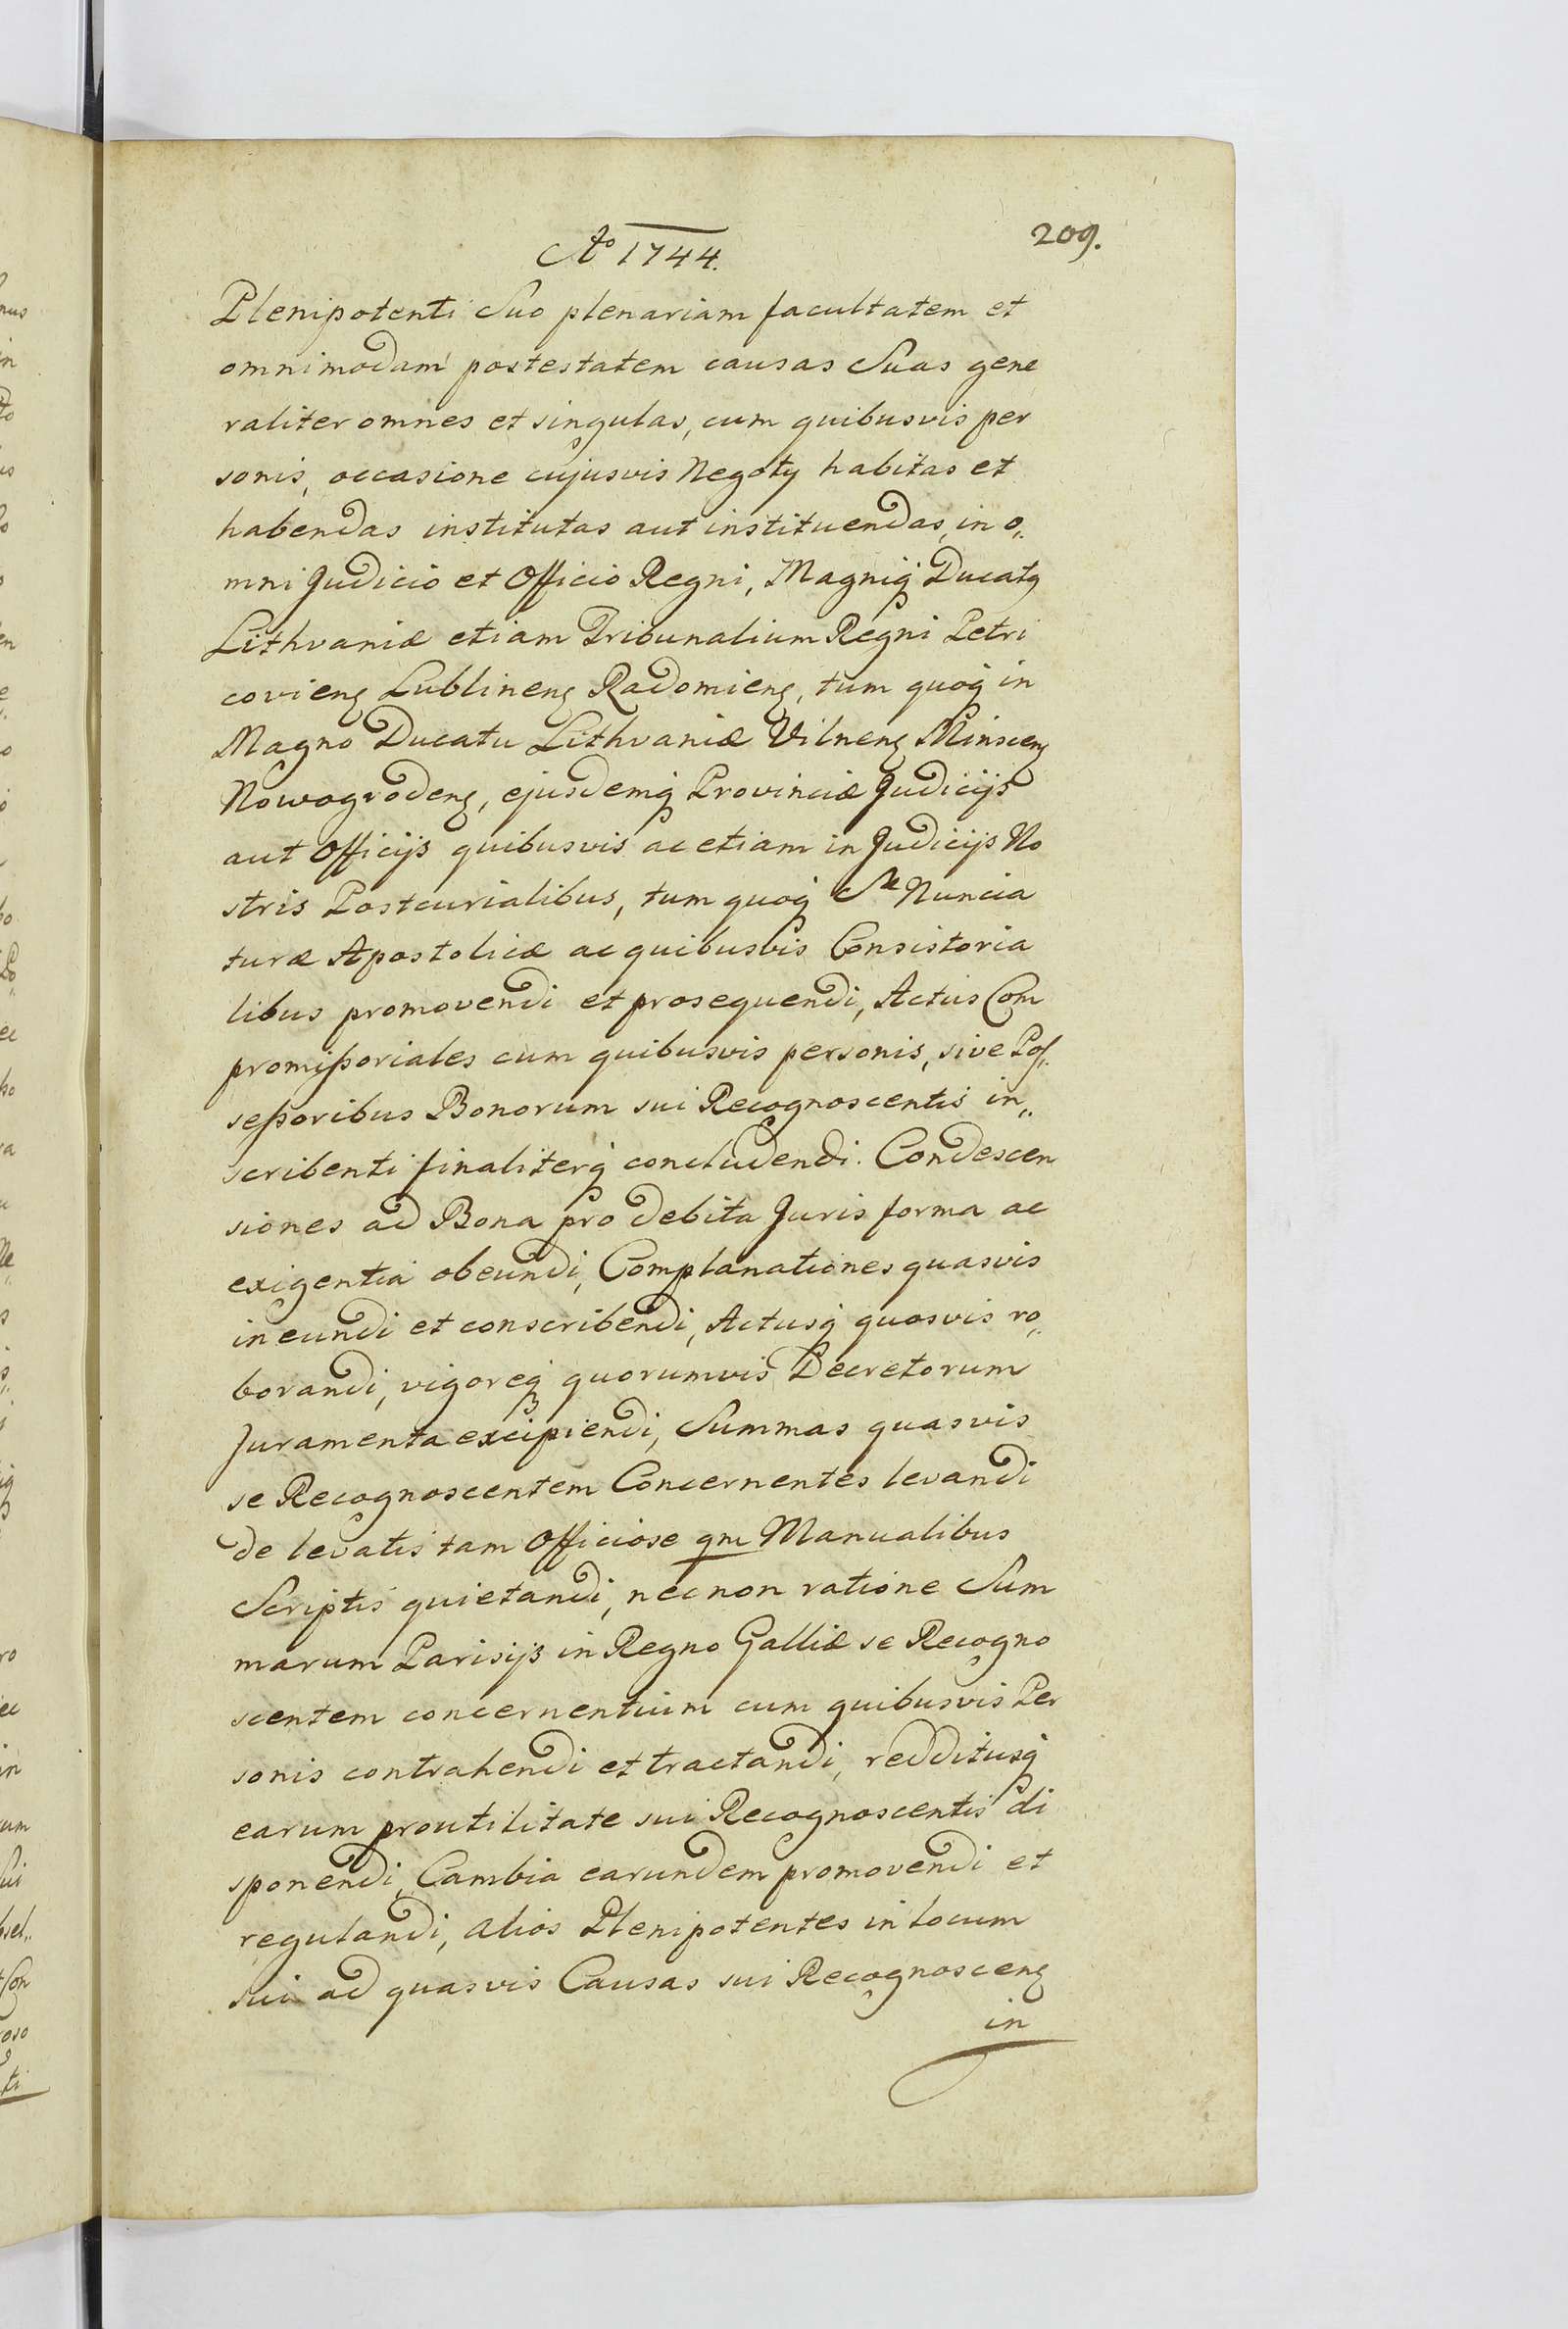 209.
Aº 1744.
Plenipotenti Suo plenariam facultatem et
omnimodam postestatem causas Suas gene
raliter omnes et singulas, cum quibusvis per
sonis, occasione cujusvis Negoty habitas et
habendas institutas aut instituendas, in o„
mni Judicio et Officio Regni, Magniq Ducatq
Lithvaniæ etiam Tribunalium Regni Petri
covieng Lublineng Radomieng, tum quoq in
Magno Ducatu Lithvaniæ Vilneng Minsceng
Nowogrodeng, ejusdemq Provinciæ Judicijs
aut Officijs quibusvis ac etiam in Judicijs No
stris Postcurialibus, tum quoq Sæ Nuncia
turæ Apostolicæ ac quibusvis Consistoria
libus promovendi et prosequendi, Actus Com
promißoriales cum quibusvis personis, sive Pos„
seßoribus Bonorum sui Recognoscentis in„
scribenti finaliterq concludendi. Condescen
siones ad Bona pro debita Juris forma ac
exigentia obeundi, Complanationes quasvis
ineundi et conscribendi, Actusq quosvis ro„
borandi, vigoreq quorumvis Decretorum
Juramenta excipiendi, Summas quasvis
se Recognoscentem Concernentes levandi
de levatis tam Officiose qm Manualibus
Scriptis quietandi, nec non ratione Sum
marum Parisijs in Regno Galliæ se Recogno
scentem concernentium cum quibusvis Per
sonis contrahendi et tractandi, redditusq
earum pro utilitate sui Recognoscentis di
sponendi, Cambia earundem promovendi et
regulandi, alios Plenipotentes in locum
sui ad quasvis Causas sui Recognosceng
in